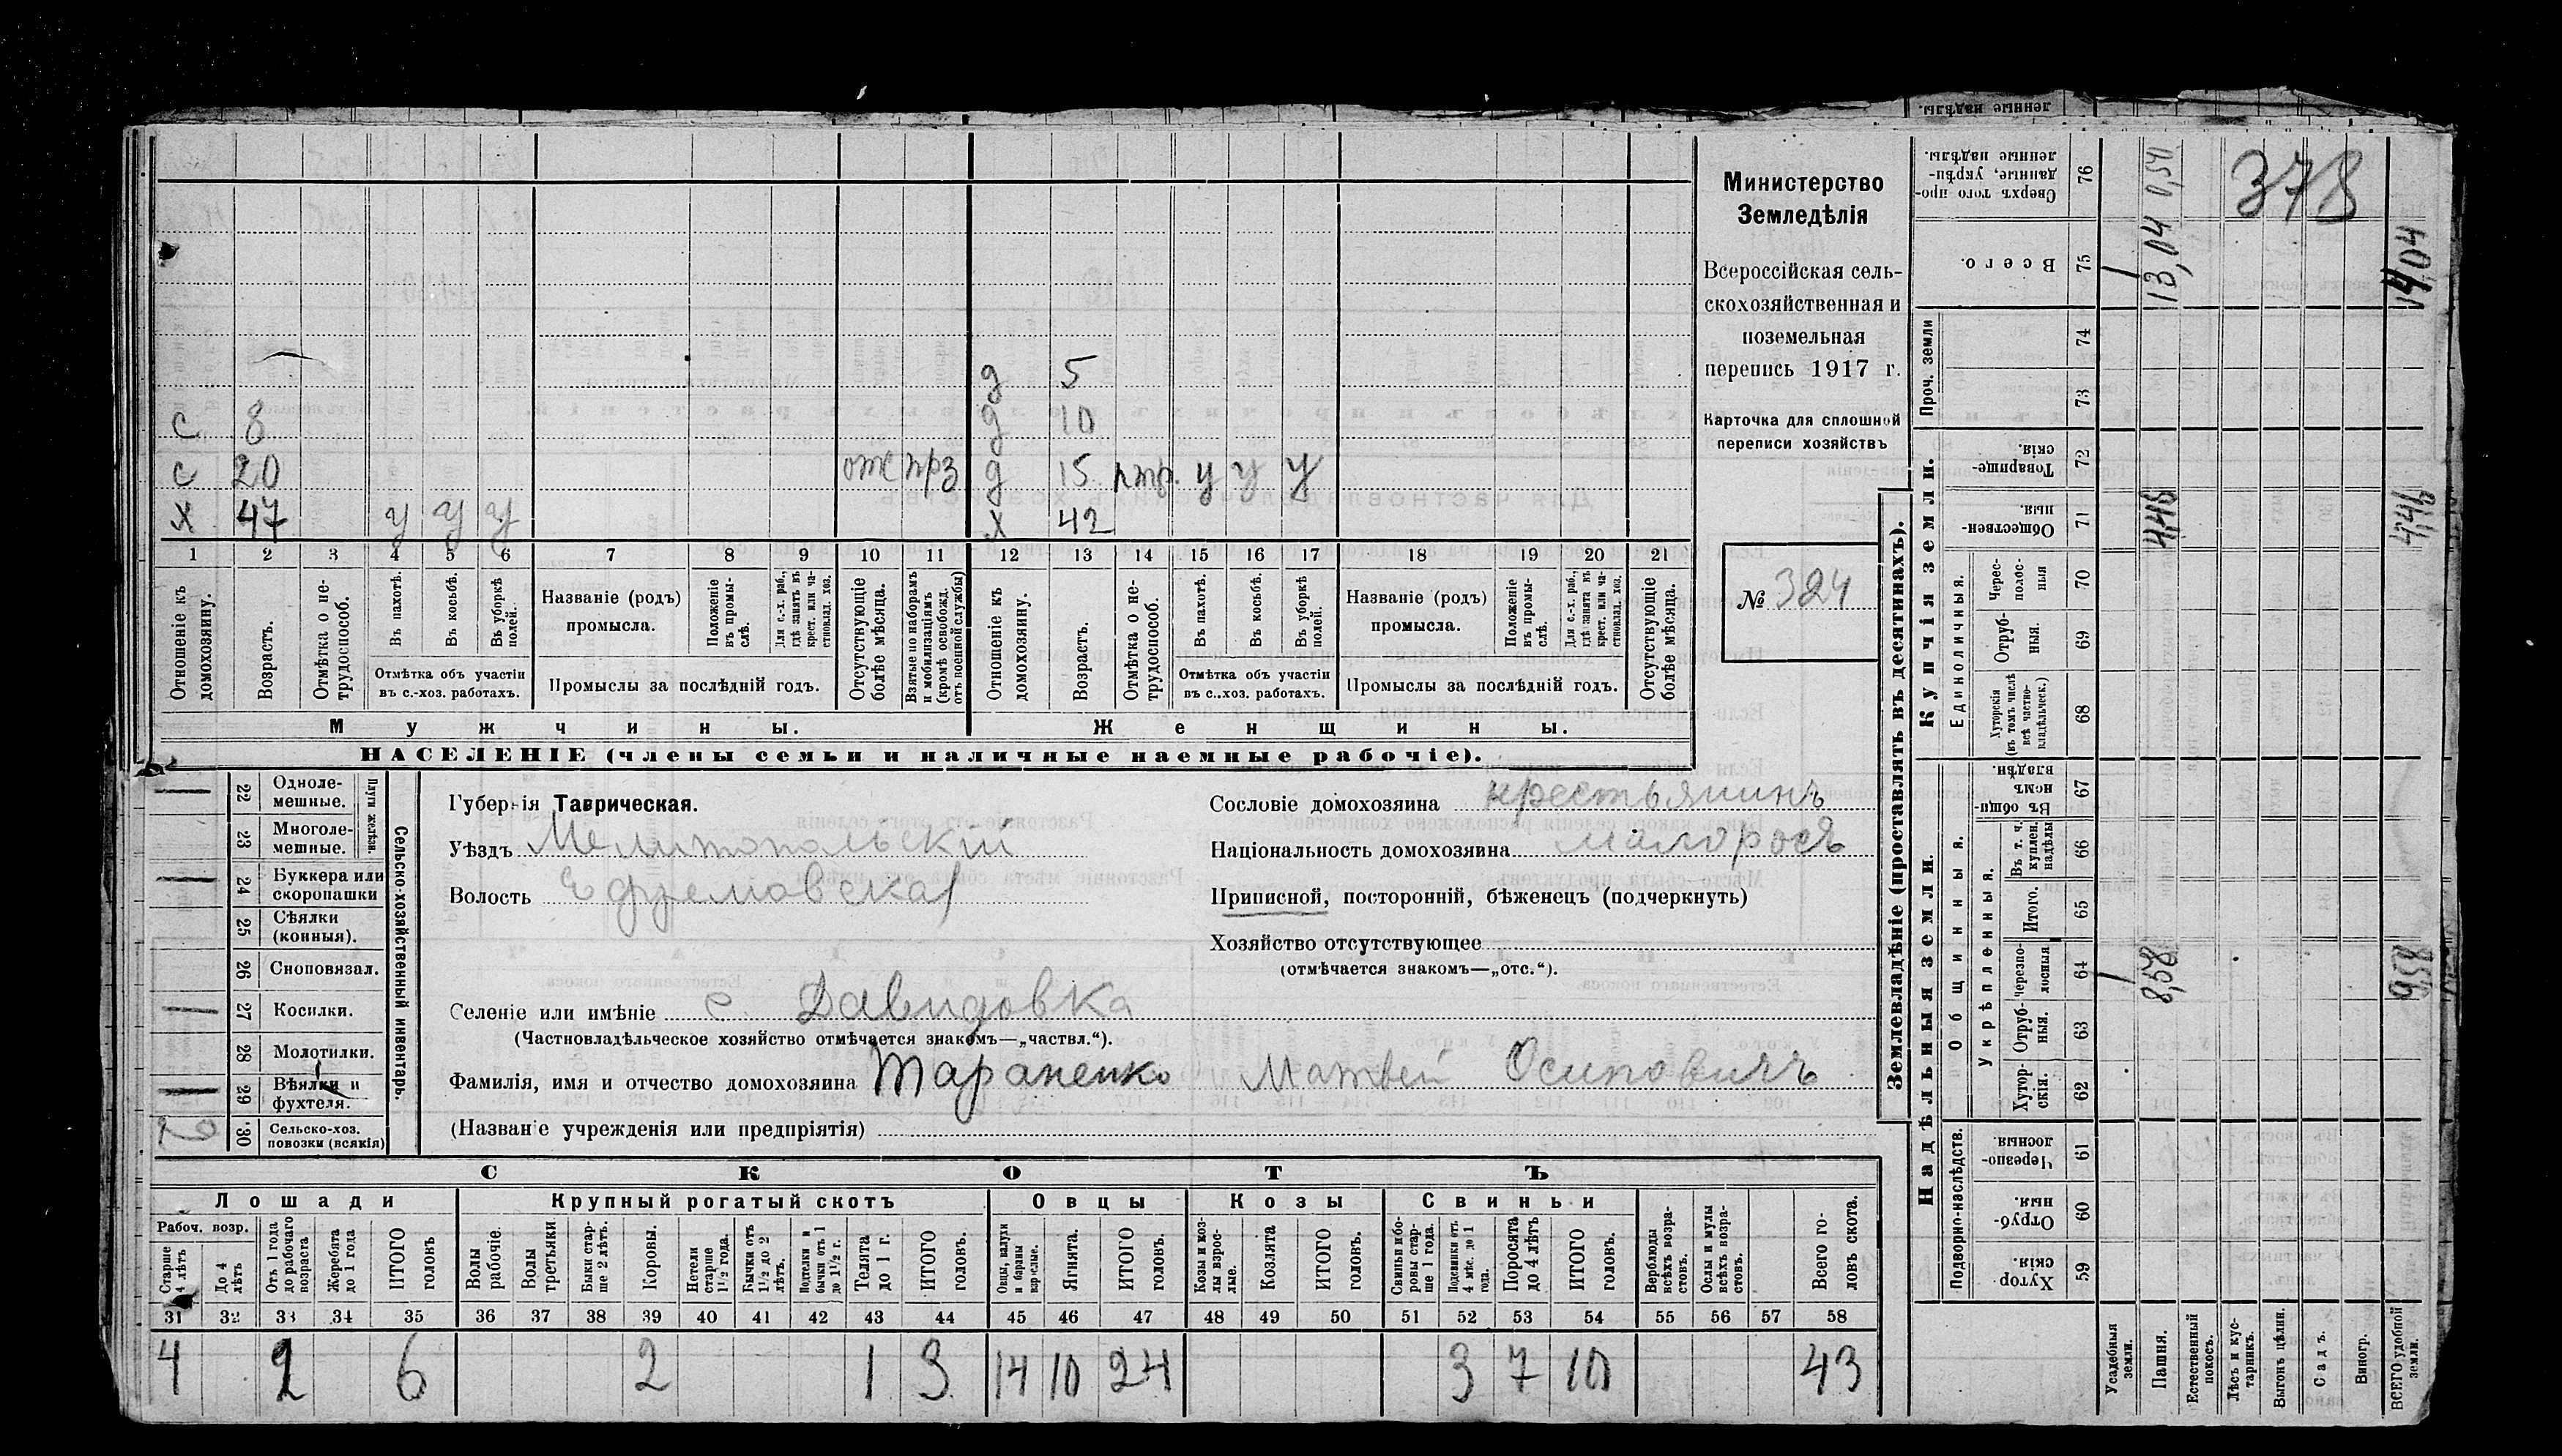 Министерство
Земледѣлія
Всероссійская сель-
скохозяйственная и
поземельная
перепись 1917 г.
Карточка для сплошной
переписи хозяйствъ
№ 324
378
д 5
с 8 д 10
с 20 отс прз д 15 У У У
х 47 У У У х 42
1 2 3 4 5 6 7 8 9 10 11 12 13 14 15 16 17 18 19 20 21
Отношеніе къ домохозяину.
Возрастъ.
Отмѣтка о не-трудоспособ.
Въ пахотѣ.
Въ косьбѣ.
Въ уборкѣ полей.
Отмѣтка объ участіи
въ с.-хоз. работахъ.
Названіе (родъ)
промысла.
Положеніе въ промы-слѣ.
Для с.-х. раб., гдѣ занятъ въ крест. или ча-стновлад. хоз.
Промыслы за послѣдній годъ.
Отсутствующіе болѣе мѣсяца.
Взятые по наборамъ и мобилизаціямъ (кромѣ освобожд. отъ военной службы)
Отношеніе къ домохозяину.
Возрастъ.
Отмѣтка о не-трудоспособ.
Въ пахотѣ.
Въ косьбѣ.
Въ уборкѣ полей.
Отмѣтка объ участіи
въ с.-хоз. работахъ.
Названіе (родъ)
промысла.
Положеніе въ промы-слѣ.
Для с.-х. раб., гдѣ занята въ крест. или ча-стновлад. хоз.
Промыслы за послѣдній годъ.
Отсутствующіе болѣе мѣсяца.
Мужчины. Женщины.
НАСЕЛЕНІЕ (члены семьи и наличные наемные рабочіе).
Сельско-хозяйственный инвентарь.
Плуги желѣзн.
22 Одноле-мешные.
23 Многоле-мешные.
24 Буккера или скоропашки
25 Сѣялки (конныя).
26 Сноповязал.
27 Косилки.
28 Молотилки.
29 Вѣялки и фухтеля.
30 Сельско-хоз. повозки (всякія)
Губернія Таврическая.
Уѣздъ Мелитопольскій
Волость Ефремовская
Селеніе или имѣніе с. Давидовка
(Частновладѣльческое хозяйство отмѣчается знакомъ—„частвл.“).
Фамилія, имя и отчество домохозяина Тараненко Матвей Осиповичъ
(Названіе учрежденія или предпріятія)
Сословіе домохозяина крестьянинъ
Національность домохозяина малоросъ
Приписной, посторонній, бѣженецъ (подчеркнуть)
Хозяйство отсутствующее
(отмѣчается знакомъ—„отс.“).
СКОТЪ
Лошади Крупный рогатый скотъ Овцы Козы Свиньи
Рабоч. возр.
Старше 4 лѣтъ
До 4 лѣтъ
Отъ 1 года до рабочаго возраста
Жеребята до 1 года
ИТОГО головъ
Волы рабочіе.
Волы третьяки
Быки стар-ше 2 лѣтъ.
Коровы.
Нетели старше 1½ года.
Бычки отъ 1½ до 2 лѣтъ.
Подтелки и бычки отъ 1 до 1½ г.
Телята до 1 г.
ИТОГО головъ.
Овцы, валухи и бараны взрослые.
Ягнята.
ИТОГО головъ.
Козы и коз-лы взрос-лые.
Козлята
ИТОГО головъ.
Свиньи и бо-ровы стар-ше 1 года.
Подсвинки отъ 4 мѣс. до 1 года.
Поросята до 4 лѣтъ
ИТОГО головъ.
Верблюды всѣхъ возра-стовъ.
Ослы и мулы всѣхъ возра-стовъ.
Всего го-ловъ скота.
31 32 33 34 35 36 37 38 39 40 41 42 43 44 45 46 47 48 49 50 51 52 53 54 55 56 57 58
4 2 6 2 1 3 14 10 24 3 7 10 43
Землевладѣніе (проставлять въ десятинахъ).
Надѣльныя земли. Купчія земли.
Подворно-наслѣдств.
Общинныя.
Укрѣпленныя.
Единоличныя.
Проч. земли
Сверхъ того про-данные, укрѣп-ленные надѣлы. 76
Всего. 75
74
73
Товарище-скія 72
Обществен-ныя. 71
Черес-полос-ныя 70
Отруб-ныя. 69
Хуторскія (въ томъ числѣ всѣ частно-владѣльческ.) 68
Въ общи-номъ владѣн. 67
Въ т. ч. куплен. надѣлы 66
Итого. 65
черезпо-лосныя 64
Отруб-ныя. 63
Хутор-скія. 62
Черезпо-лосныя. 61
Отруб-ныя. 60
Хутор-скія. 59
Усадебныя земли.
Пашня.
Естественный покосъ.
Лѣсъ и кус-тарникъ.
Выгонъ цѣлин.
Садъ.
Виногр.
ВСЕГО удобной земли.
13,04 0,54
4,46
8,58